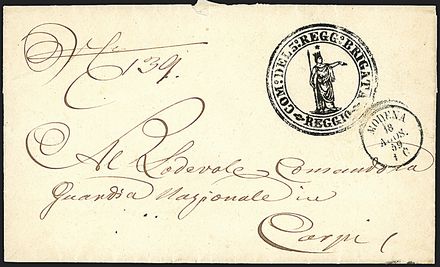 N. 139.
COM: DEL 5º: REGGº: BRIGATA
REGGIO
MODENA
18
AGOS.
59
Al Lodevole Comando
Guardia Nazionale in
Carpi